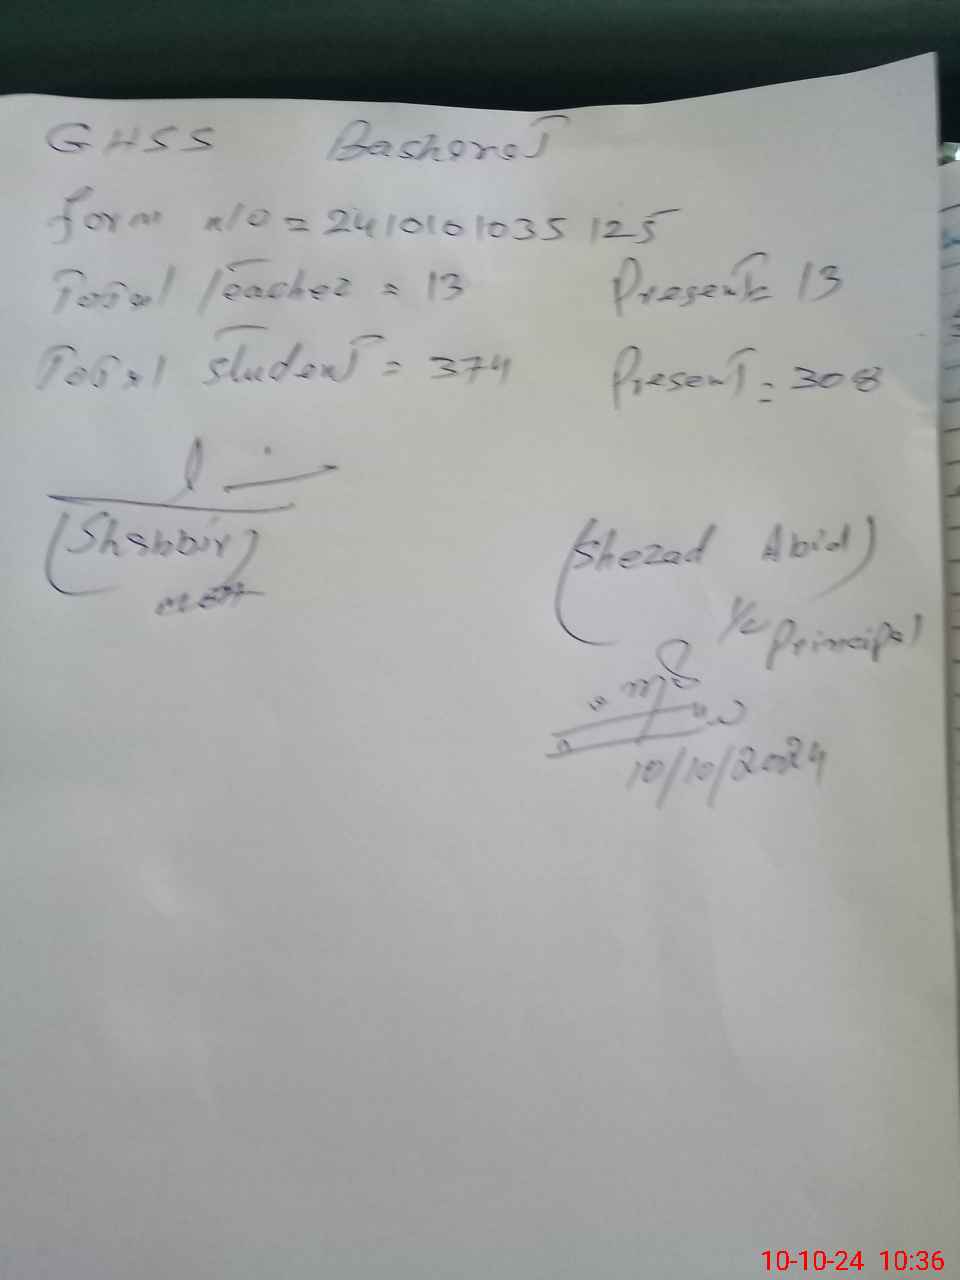 GHSS Basharat
form n/o = 2410101035125
Total Teacher = 13 Present = 13
Total student = 374 Present = 308
(Shabbir)
(Shezad Abid)
I/c Principal
10/10/2024
10-10-24 10:36